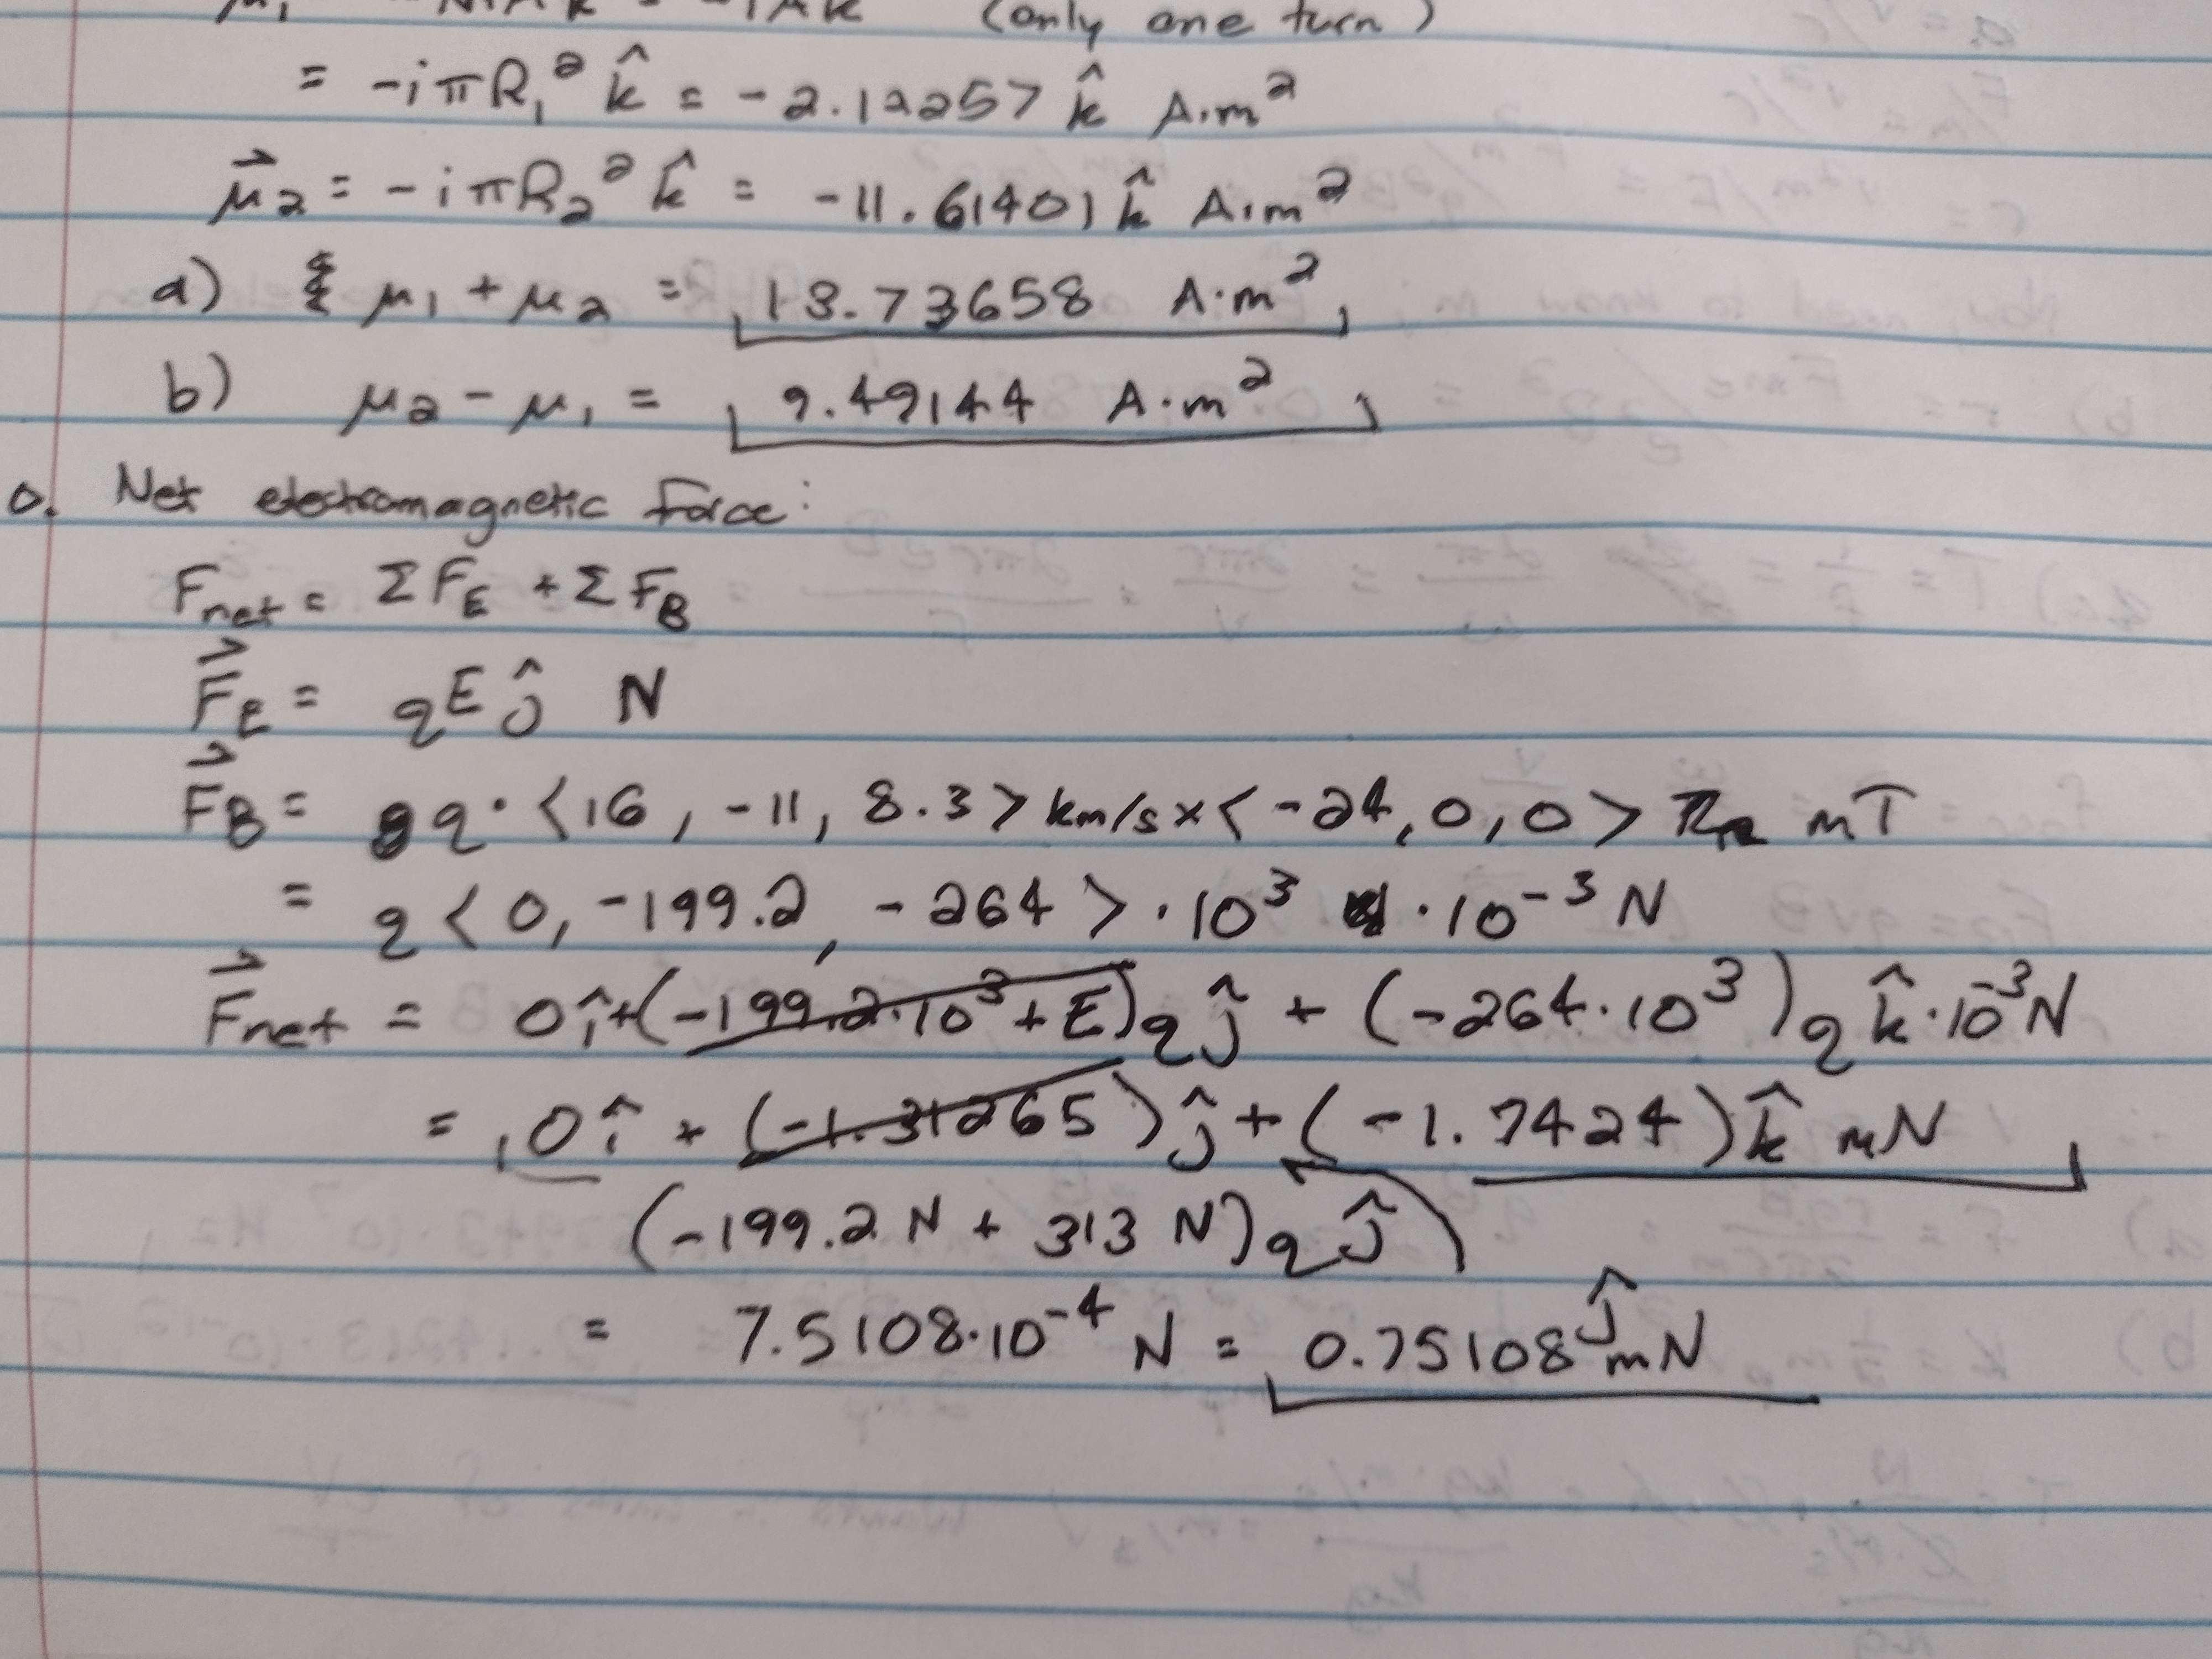 (only one turn)
= -iπR₁² k̂ = -2.12257 k̂ A·m²
μ⃗₂ = -iπR₂² k̂ = -11.61401 k̂ A·m²
a) μ₁ + μ₂ = 13.73658 A·m²
b) μ₂ - μ₁ = 9.49144 A·m²
0. Net electromagnetic force:
Fnet = ΣF_E + ΣF_B
F⃗_E = qE ĵ N
F⃗_B = q·<16, -11, 8.3> km/s × <-24, 0, 0> mT
= q<0, -199.2, -264>·10³ ·10⁻³ N
F⃗net = 0î + (-199.2·10³ + E)qĵ + (-264·10³)q k̂·10⁻³ N
= 0î + (-1.31265)ĵ + (-1.7424)k̂ mN
(-199.2 N + 313 N)qĵ
= 7.5108·10⁻⁴ N = 0.75108 ĵ mN